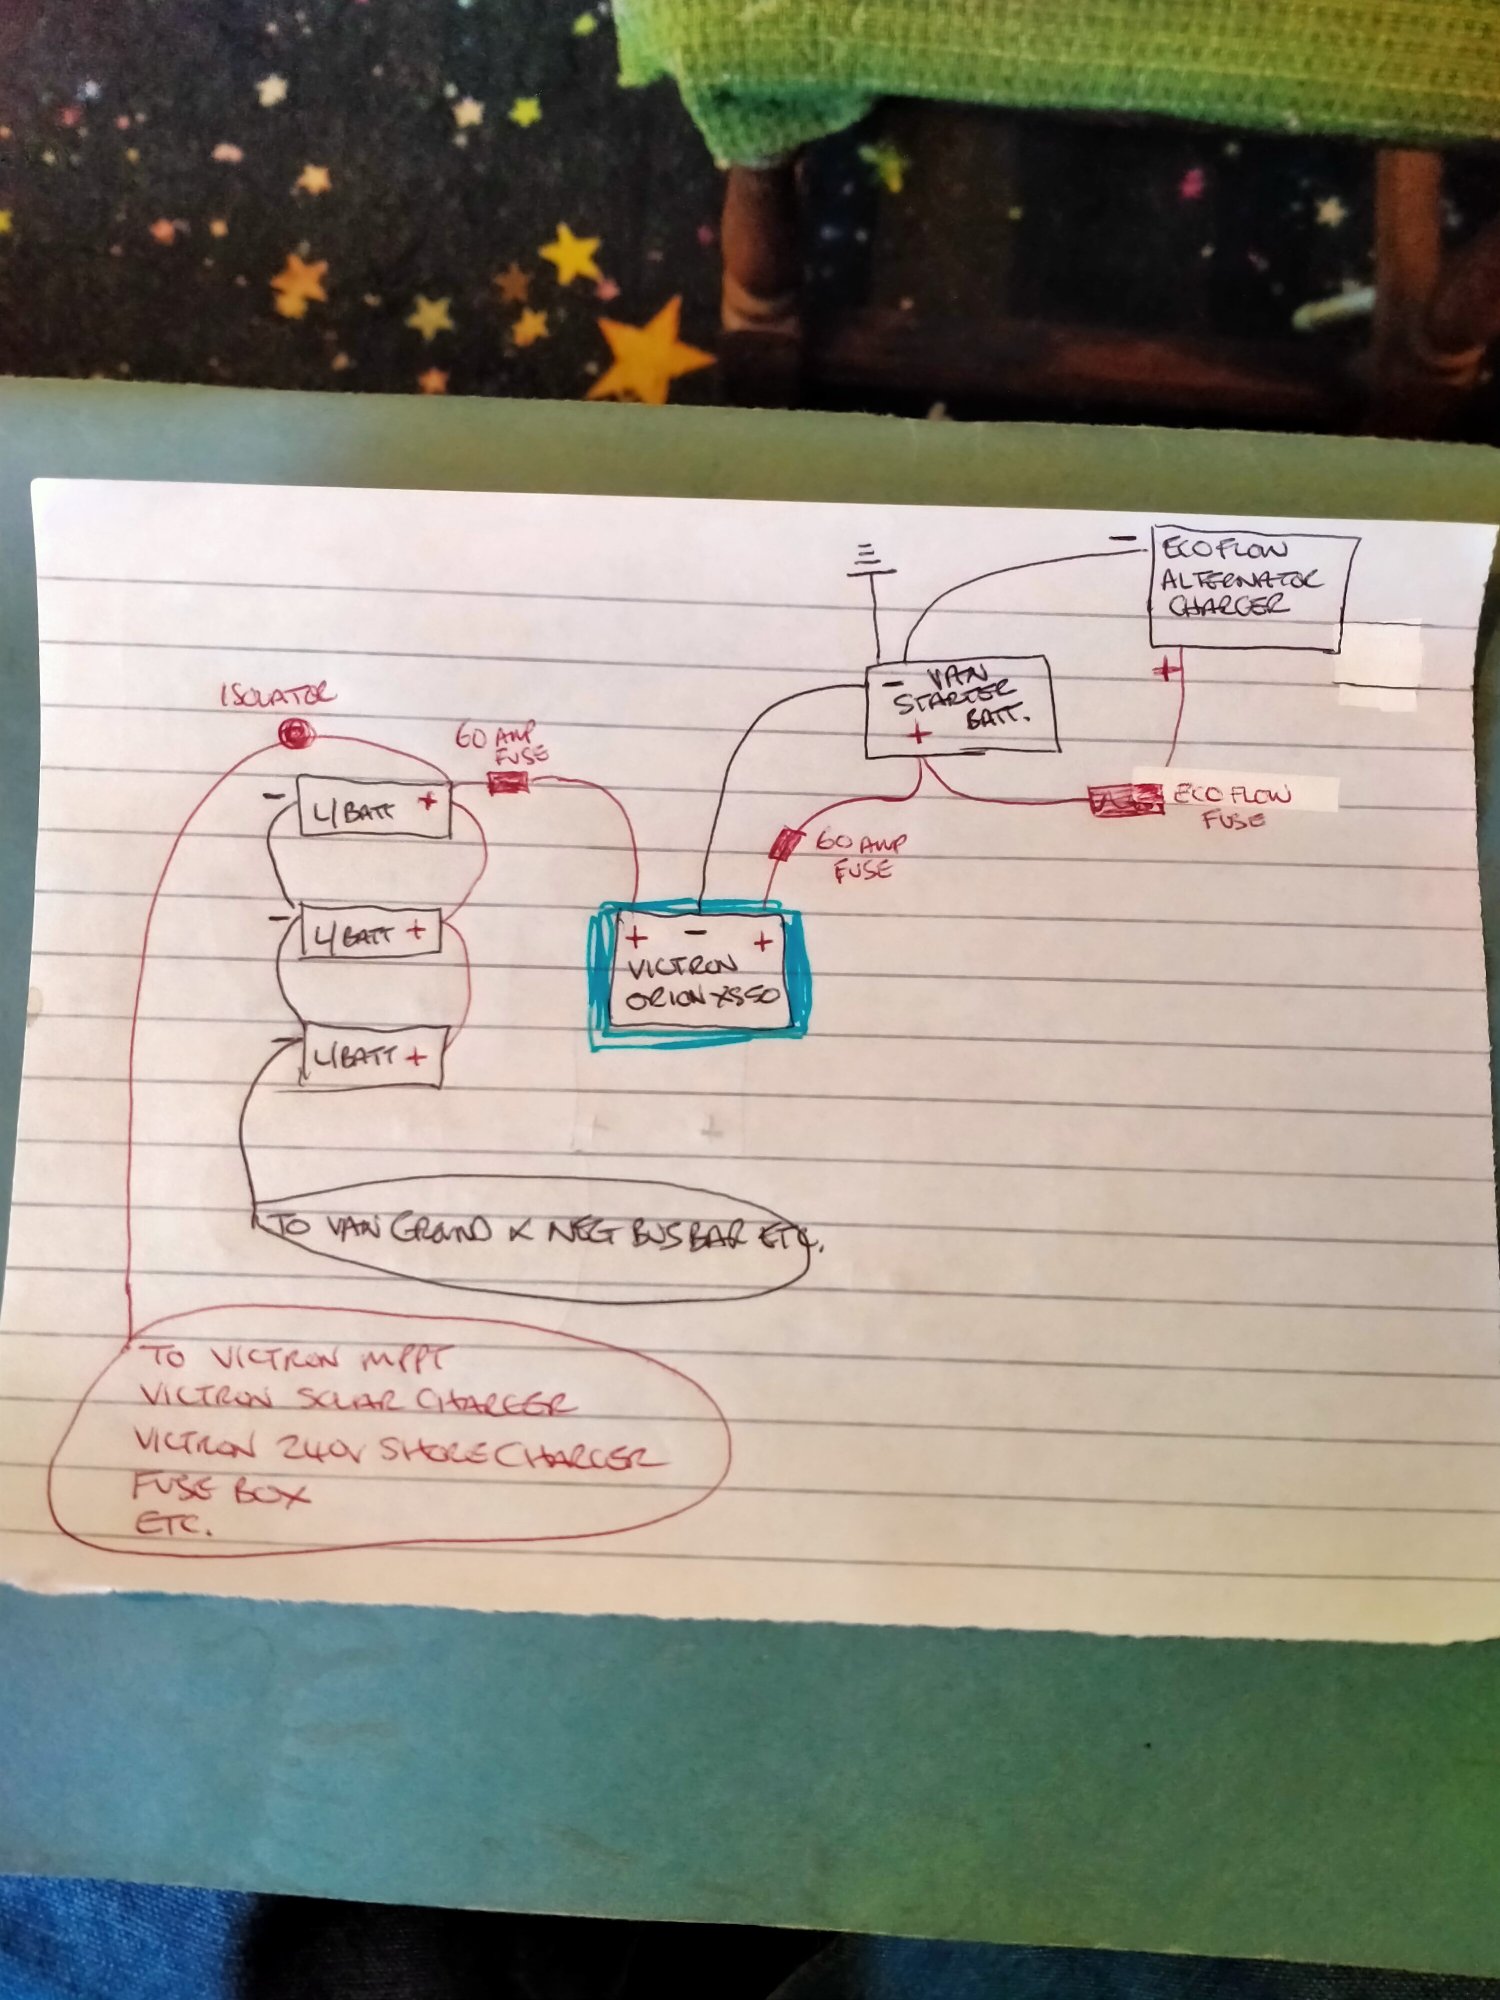 ECOFLOW
ALTERNATOR
CHARGER
-
+
- VAN
STARTER
BATT.
+
ISOLATOR
60 AMP
FUSE
ECOFLOW
FUSE
60 AMP
FUSE
- L/BATT +
- L/BATT +
- L/BATT +
+ - +
VICTRON
ORION XS50
TO VAN GROUND & NEG BUSBAR ETC.
TO VICTRON MPPT
VICTRON SOLAR CHARGER
VICTRON 240V SHORE CHARGER
FUSE BOX
ETC.